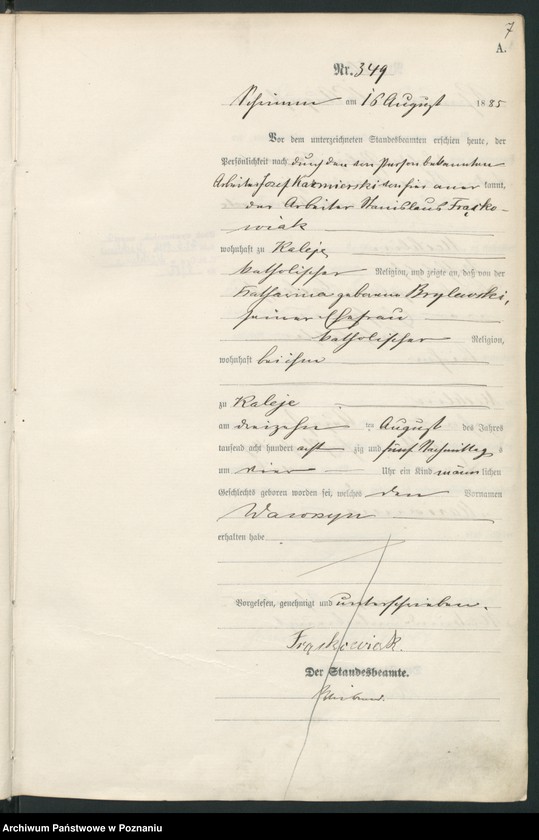 7
A.
Nr. 349
Schrimm am 16 August 1885
Vor dem unterzeichneten Standesbeamten erschien heute, der
Persönlichkeit nach durch den von Person bekannten
Arbeiter Josef Kazmierski von hier aner kannt,
der Arbeiter Stanislaus Frąsko-
wiak
wohnhaft zu Kaleje
katholischer Religion, und zeigte an, daß von der
Katharina geborene Brylewski,
seiner Ehefrau
katholischer Religion,
wohnhaft bei ihm
zu Kaleje
am dreizehn ten August des Jahres
tausend acht hundert acht zig und fünf Nachmittags
um vier Uhr ein Kind männlichen
Geschlechts geboren worden sei, welches den Vornamen
Wawrzyn
erhalten habe
Vorgelesen, genehmigt und unterschrieben.
Frąskowiak.
Der Standesbeamte.
Archiwum Państwowe w Poznaniu